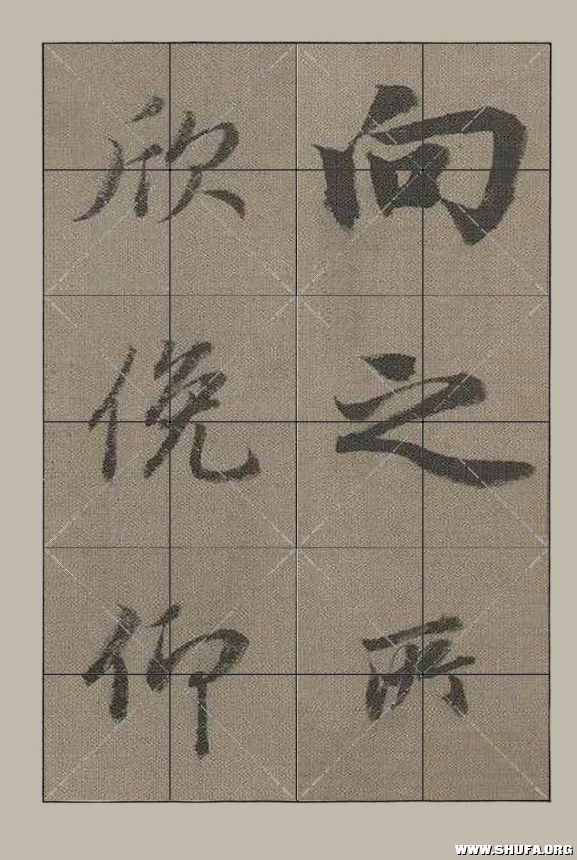 向之所
欣俛仰
WWW.SHUFA.ORG